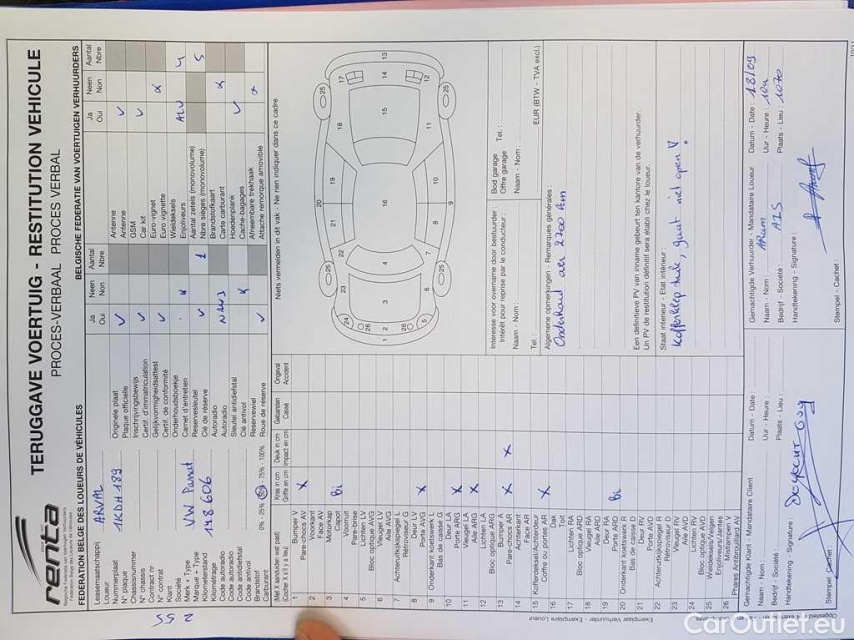 TERUGGAVE VOERTUIG - RESTITUTION VEHICULE
PROCES-VERBAAL PROCES VERBAL
renta
FEDERATION BELGE DES LOUEURS DE VÉHICULES
BELGISCHE FEDERATIE VAN VOERTUIGEN VERHUURDERS
Leasemaatschappij ARVAL
Loueur
Nummerplaat 1KDH189
N° plaque
Chassisnummer
N° chassis
Contract nr
N° contrat
Klant
Société
Merk + Type VW Passat
Marque + Type
Kilometerstand 178606
Kilométrage
Code autoradio
Code autoradio
Code antidiefstal
Code antivol
Brandstof 0% - 25% - 50% - 75% - 100%
Carburant
Ja Neen Aantal
Oui Non Nbre
Originele plaat
Plaque officielle
Inschrijvingsbewijs
Certif. d'immatriculation
Gelijkvormigheidsattest
Certif. de conformité
Onderhoudsboekje
Carnet d'entretien
Reservesleutel 1
Clé de réserve
Autoradio
Autoradio
Sleutel antidiefstal
Clé antivol
Reservewiel
Roue de réserve
Ja Neen Aantal
Oui Non Nbre
Antenne
Antenne
GSM
Car kit
Euro-vignet
Euro vignette
Wieldeksels ALU 4
Enjoliveurs
Aantal zetels (monovolume) 5
Nbre sièges (monovolume)
Brandstofkaart
Carte carburant
Hoedenplank
Cache-bagages
Afneembare trekhaak
Attache remorque amovible
Kras in cm Deuk in cm Gebarsten Ongeval
Griffe en cm Impact en cm Cassé Accident
1 Bumper V
Pare-chocs AV X
2 Voorkant
Face AV
3 Motorkap
Capot Bi
4 Voorruit
Pare-brise
5 Lichten LV
Bloc optique AVG
6 Vleugel LV
Aile AVG
7 Achteruitkijkspiegel L
Rétroviseur G
8 Deur LV
Porte AVG X
9 Onderkant koetswerk L
Bas de caisse G
10 Deur LA
Porte ARG X
11 Vleugel LA
Aile ARG X
12 Lichten LA
Bloc optique ARG
13 Bumper A
Pare-chocs AR X X
14 Achterkant
Face AR
15 Kofferdeksel/Achterdeur
Coffre ou portes AR X
16 Dak
Toit
17 Lichten RA
Bloc optique ARD
18 Vleugel RA
Aile ARD
19 Deur RA
Porte ARD Bi
20 Onderkant koetswerk R
Bas de caisse D
21 Deur RV
Porte AVD
22 Achteruitkijkspiegel R
Rétroviseur D
23 Vleugel RV
Aile AVD
24 Lichten RV
Bloc optique AVD
25 Wieldeksels/Velgen
Enjoliveurs/Jantes
26 Mistlampen V
Phares Antibrouillard AV
Niets vermelden in dit vak - Ne rien indiquer dans ce cadre
Interesse voor overname door bestuurder
Intérêt pour reprise par le conducteur :
Naam - Nom :
Tel. :
Bod garage
Offre garage Tel. :
Naam - Nom :
EUR (BTW - TVA excl.)
Algemene opmerkingen - Remarques générales :
Onderhoud over 2700 km
Een definitieve PV van inname gebeurt ten kantore van de verhuurder.
Un PV de restitution définitif sera établi chez le loueur.
Staat interieur - Etat intérieur :
Kofferklep stuk, gaat niet open ∇
Gemachtigde Klant - Mandataire Client
Datum - Date :
Naam - Nom :
Uur - Heure :
Bedrijf - Société :
Plaats - Lieu :
Handtekening - Signature :
Stempel - Cachet :
Gemachtigde Verhuurder - Mandataire Loueur
Datum - Date : 18/09
Naam - Nom :
Uur - Heure : 10u
Bedrijf - Société : AIS
Plaats - Lieu : 1070
Handtekening - Signature :
Stempel - Cachet :
Exemplaar Verhuurder - Exemplaire Loueur
255
CarOutlet.eu